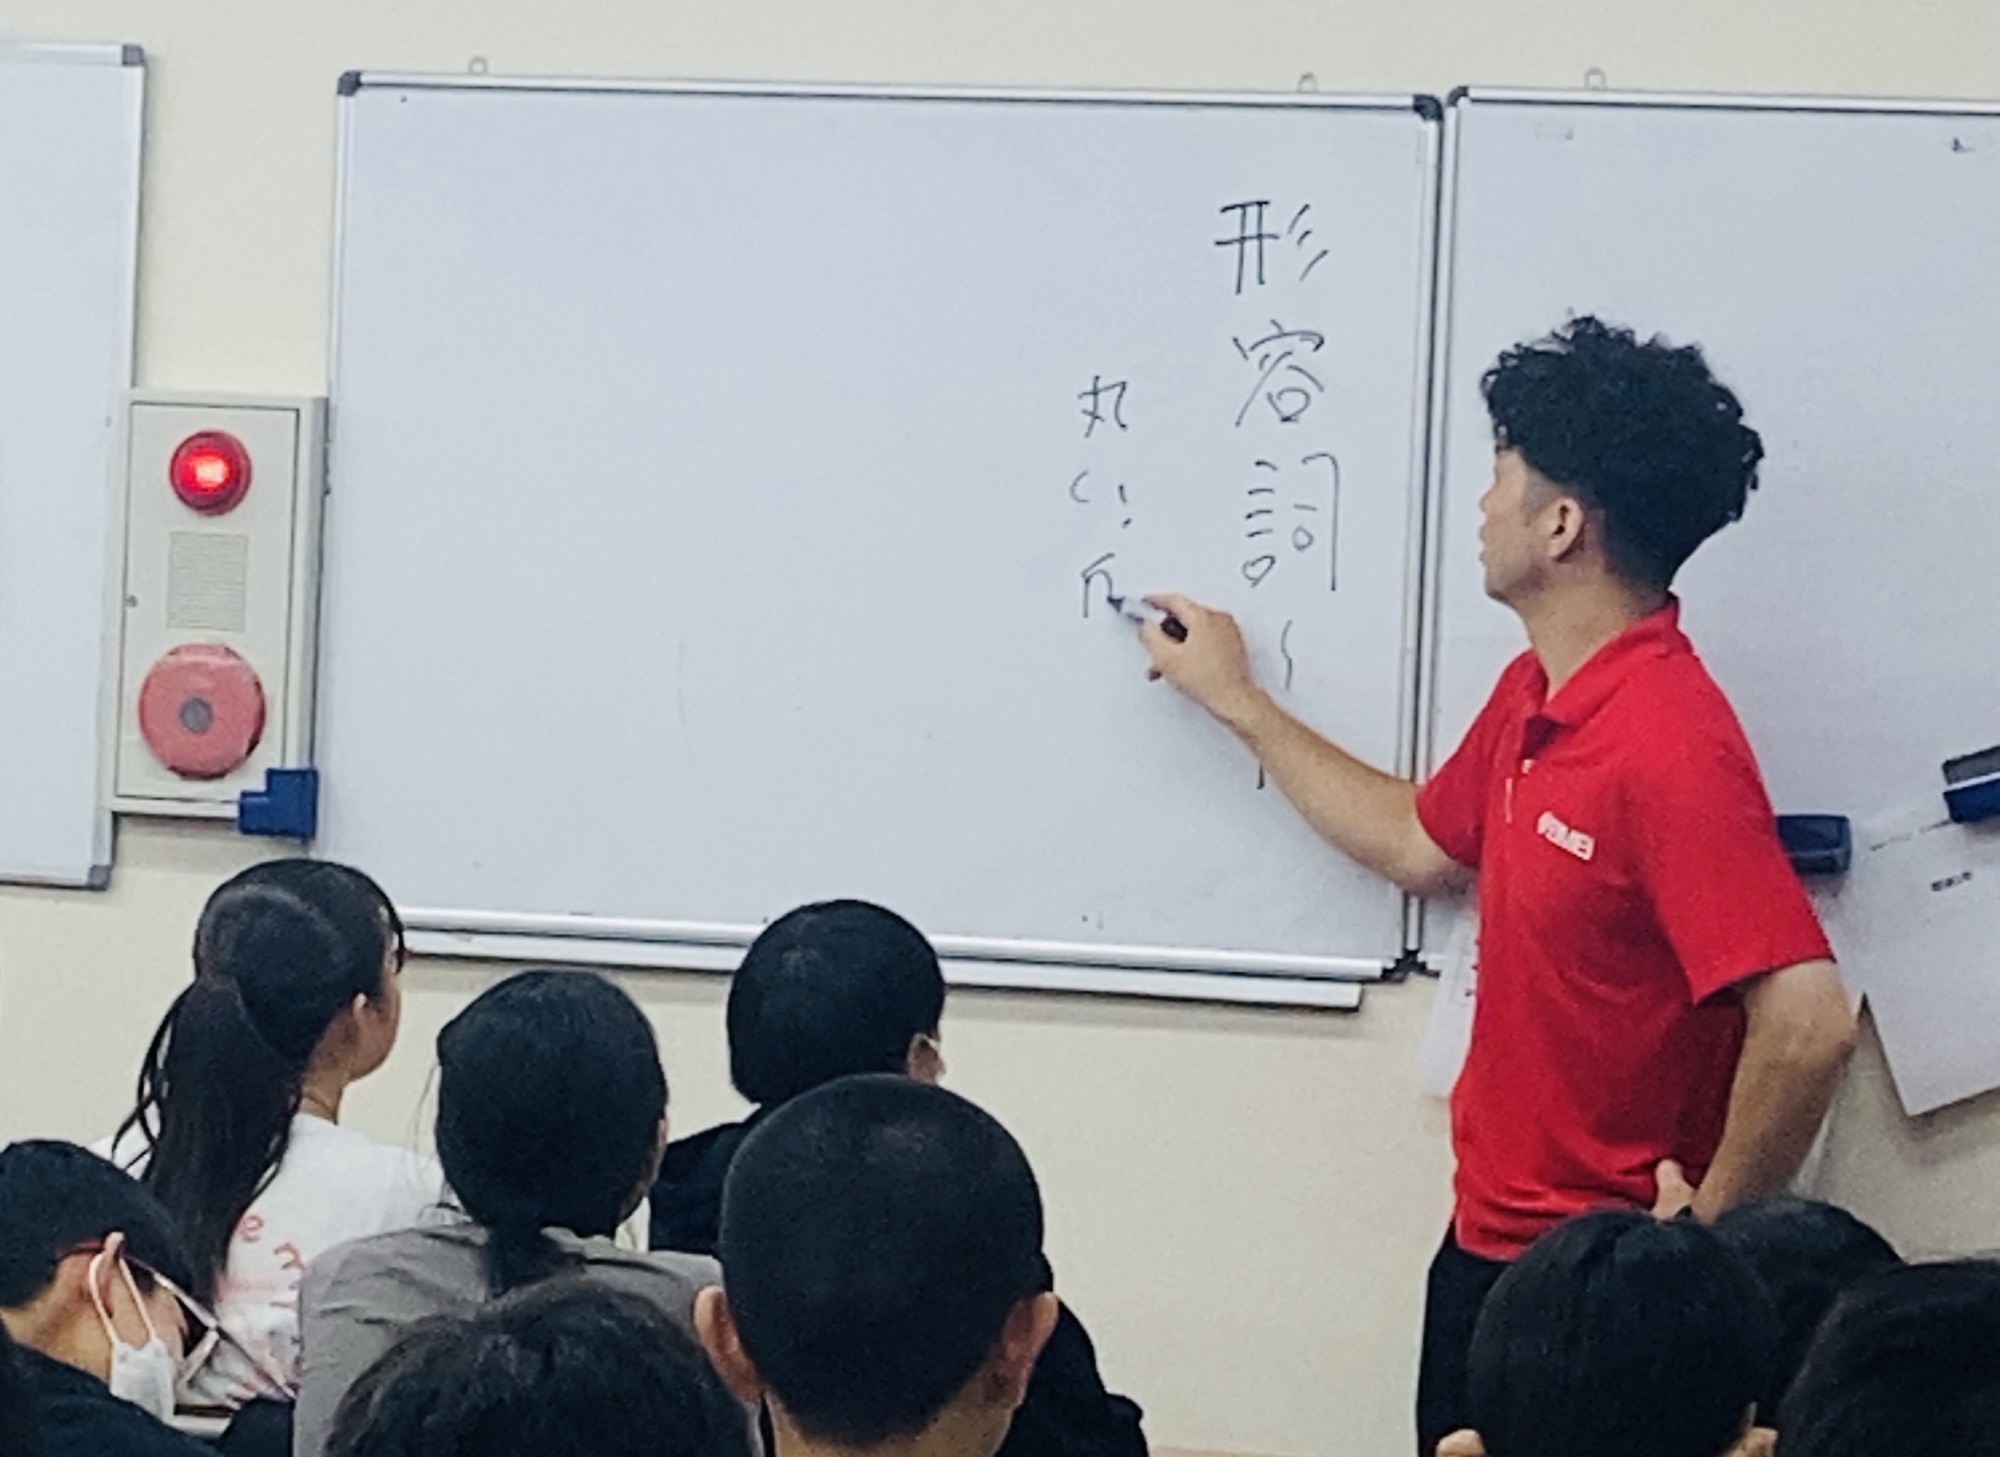 形容詞〜
丸い、